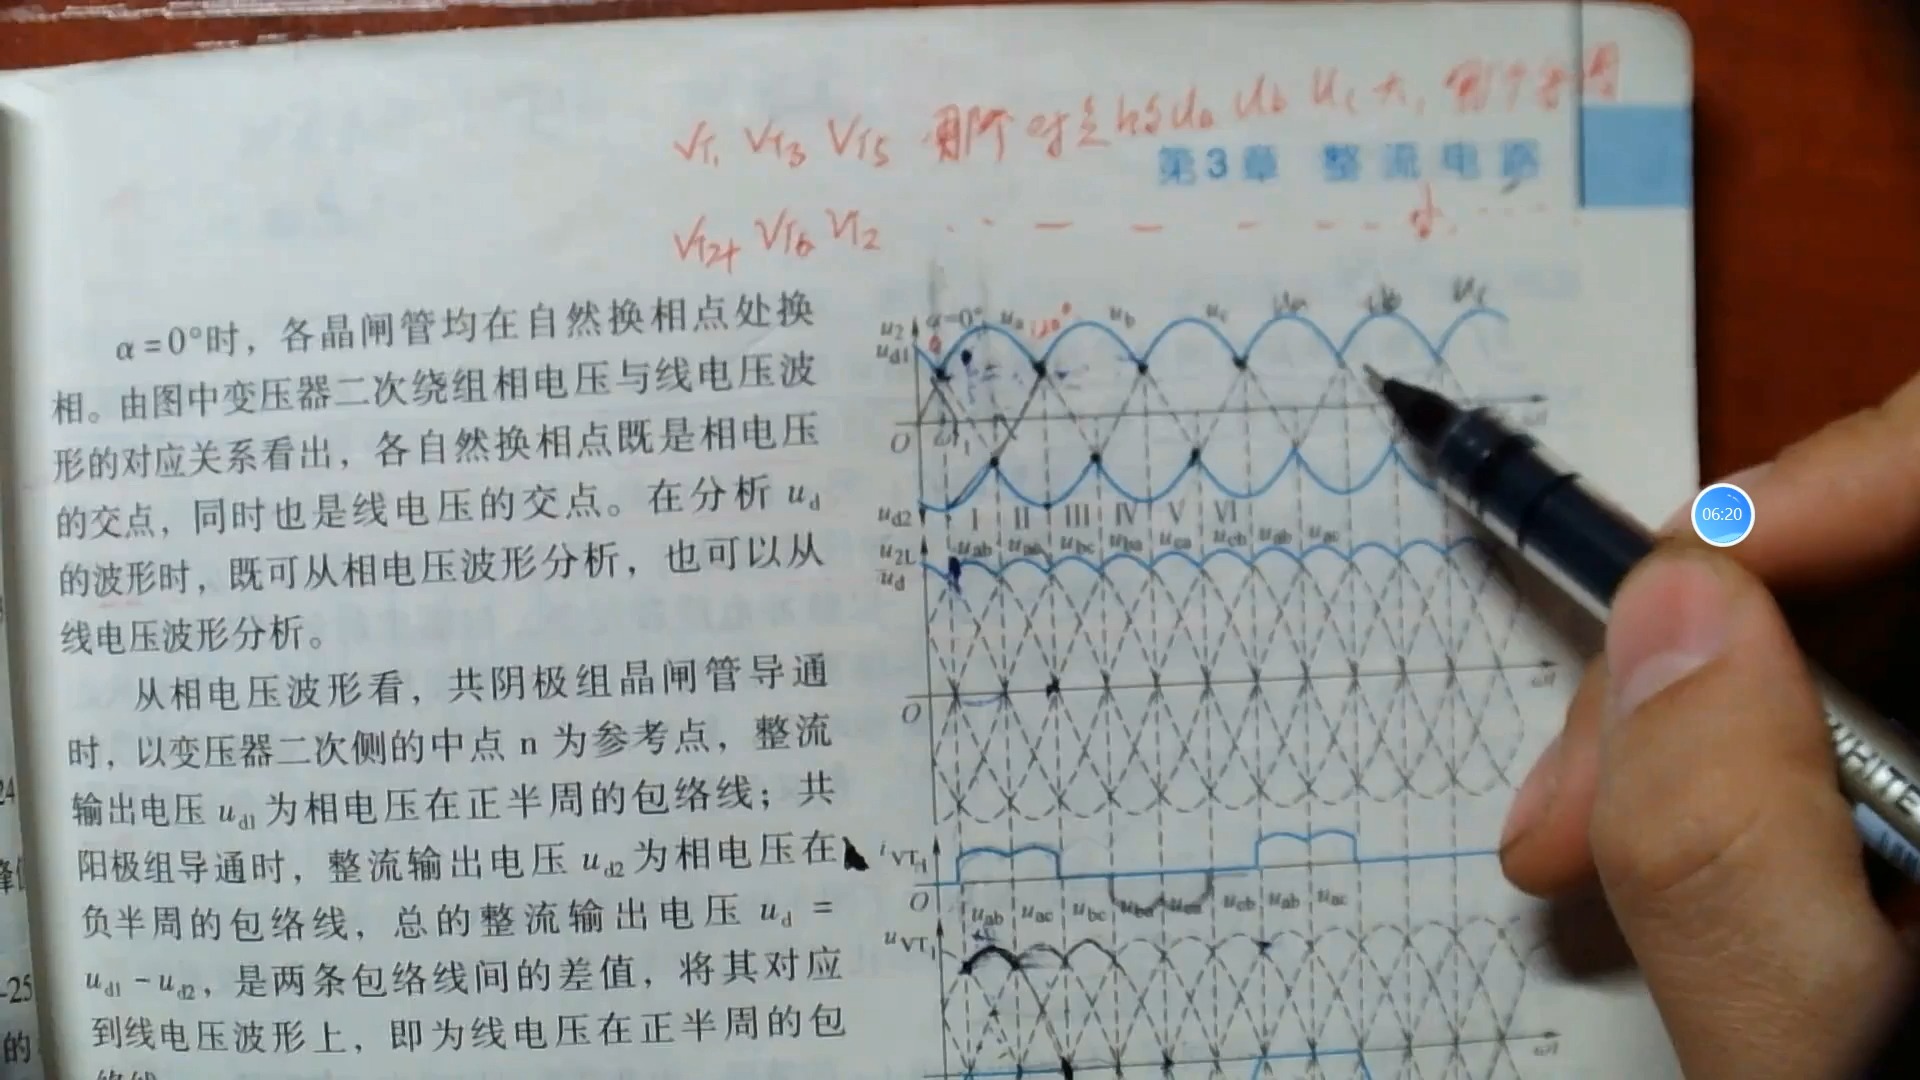 VT1 VT3 VT5 哪个时候 ua ub uc 大，哪个导通
第3章 整流电路
VT4 VT6 VT2 小
α=0°时，各晶闸管均在自然换相点处换
相。由图中变压器二次绕组相电压与线电压波
形的对应关系看出，各自然换相点既是相电压
的交点，同时也是线电压的交点。在分析 ud
的波形时，既可从相电压波形分析，也可以从
线电压波形分析。
从相电压波形看，共阴极组晶闸管导通
时，以变压器二次侧的中点 n 为参考点，整流
输出电压 ud1 为相电压在正半周的包络线；共
阳极组导通时，整流输出电压 ud2 为相电压在
负半周的包络线，总的整流输出电压 ud =
ud1 - ud2，是两条包络线间的差值，将其对应
到线电压波形上，即为线电压在正半周的包
u2 α=0° ua 120° ub uc ua ub uc
ud1
O ωt1 ωt
ud2 I II III IV V VI
u2L uab uac ubc uba uca ucb uab uac
ud
O ωt
iVT1
O uab uac ubc uba uca ucb uab uac
uVT1
ωt
06:20
24
-25
的
WHITE